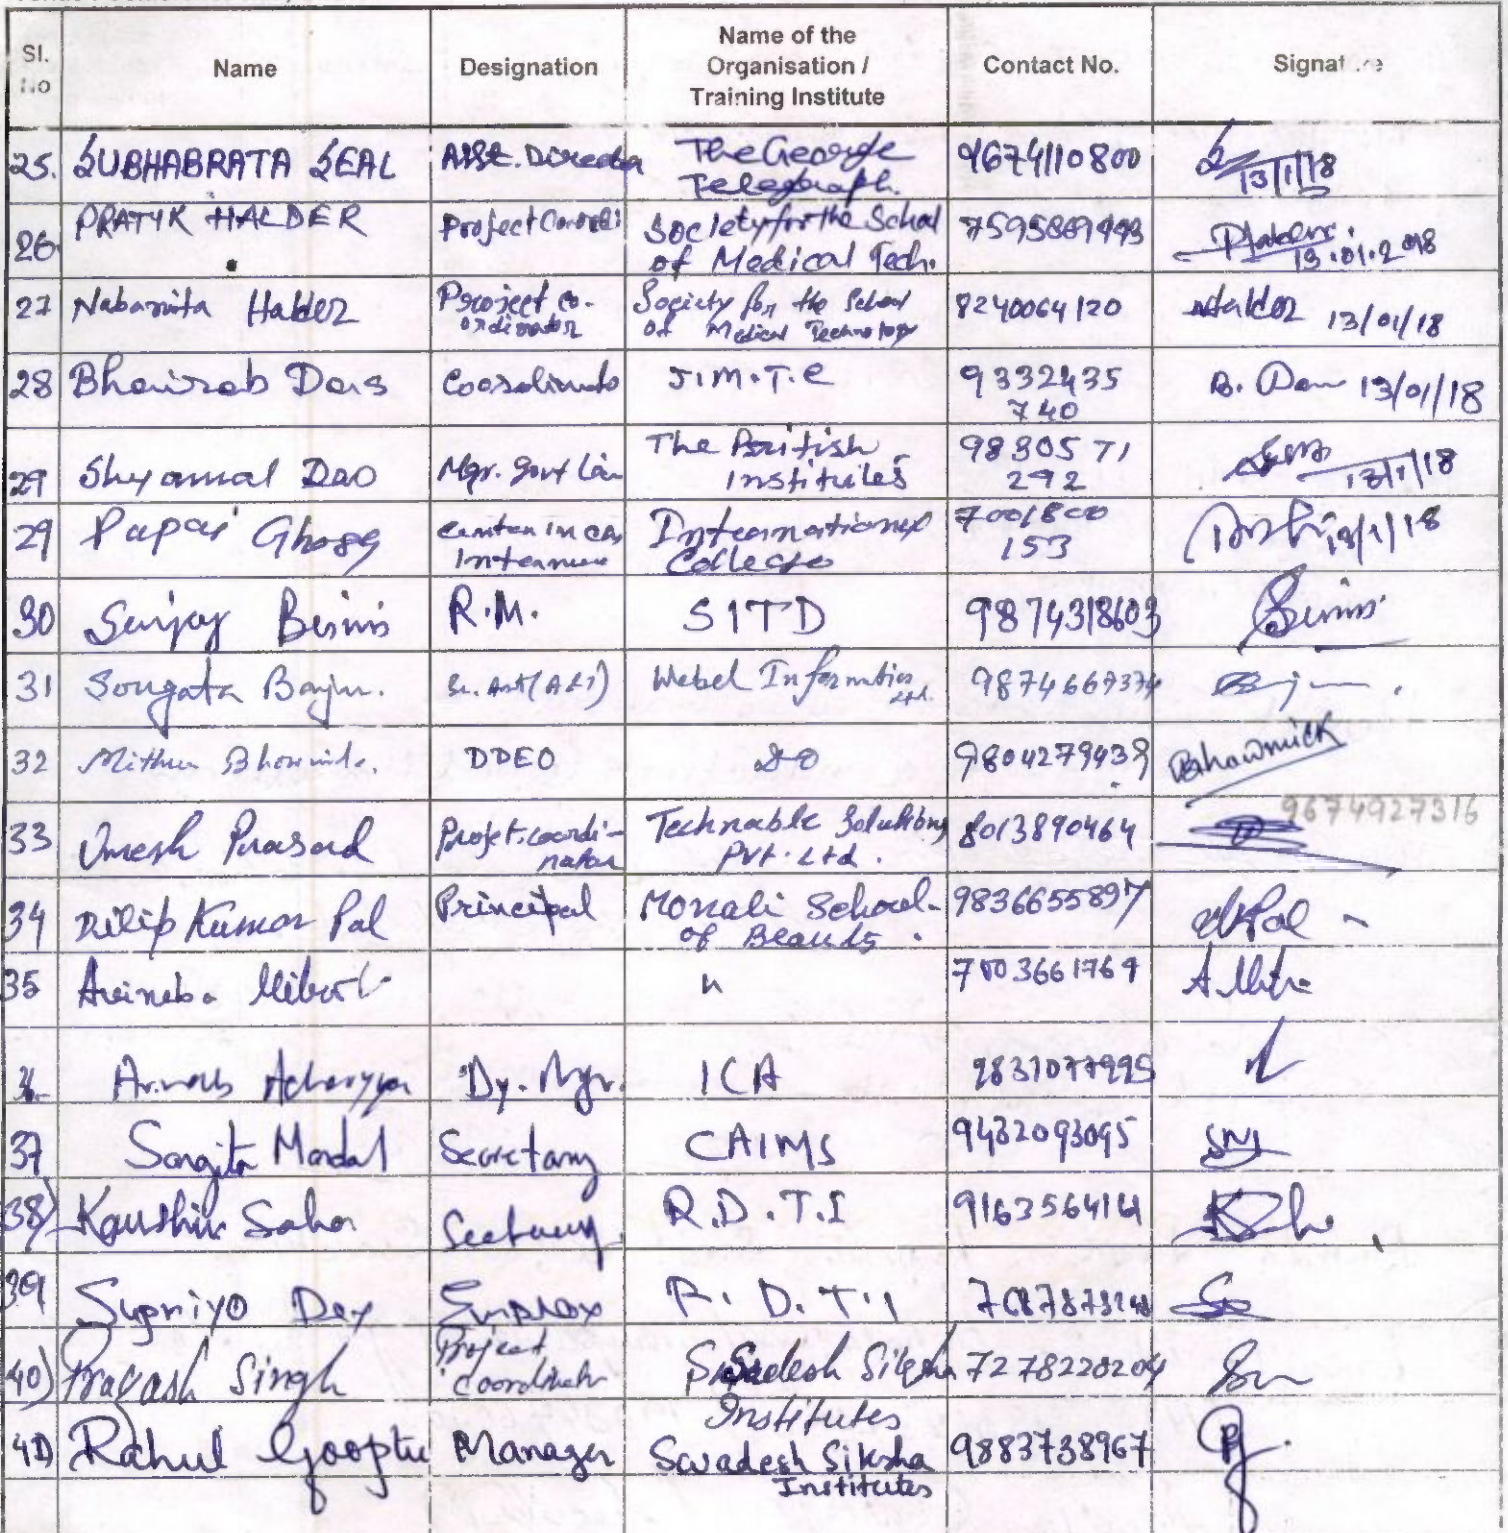 Sl. No Name Designation Name of the Organisation / Training Institute Contact No. Signature
25. SUBHABRATA SEAL Asst. Director The George Telegraph. 9674110800 13/1/18
26. PRATIK HALDER Project Coordi Society for the School of Medical Tech. 7595869443 13.01.2018
27 Nabamita Halder Project co-ordinator Society for the School of Medical Technology 8240064120 Halder 13/01/18
28 Bhairab Das J.I.M.T.C 9332435 740 B. Das 13/01/18
29 Shyamal Das Mgr. Govt The British Institutes 98305 71 292 13/1/18
29 Papai Ghosg International College 7001800 153 13/1/18
30 Sanjay R.M. SITD 9874318603
31 Sougata Webel Informatics Ltd.
32 Mithun DDEO DO 9804279439 Bhowmick
33 Umesh Prasad Projet.coordi-nator Technable Solutions Pvt. Ltd. 8013890464 9674927316
34 Dilip Kumar Pal Principal Monali School of Beauty. 9836655897
35 " 7003661769
36 Arnab Acharyya Dy. Mgr. ICA
37 Sangita Mondal Secretary CAIMS 9432093095
38) Kaushik Saha R.D.T.I
39 Supriyo Dey R.D.T.I
40) Prakash Singh Project Coordinator Swadesh Siksha Institutes 7278220204
41) Rahul Gooptu Manager Swadesh Siksha Institutes 9883738967